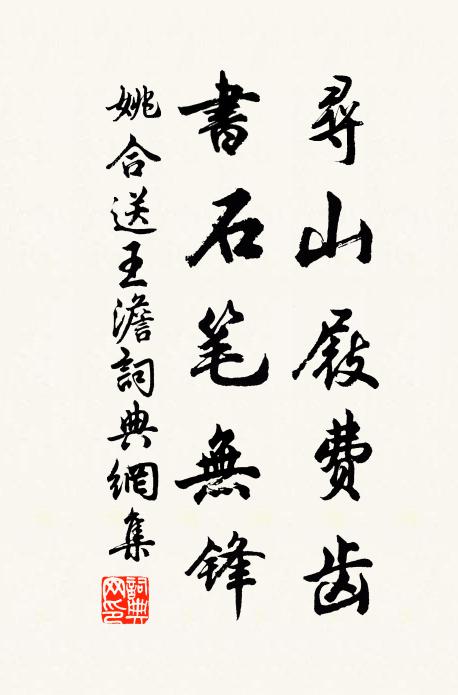 尋山屐費齿
書石笔無锋
姚合送王澹詞典網集
詞典网印